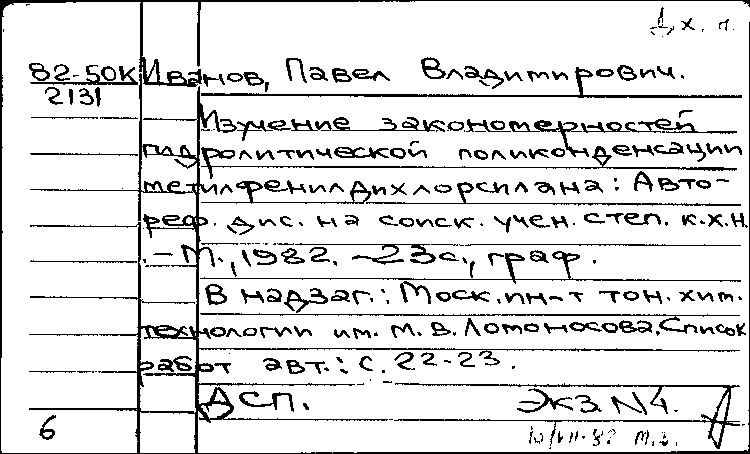 Д х. п.
82-50К Иванов, Павел Владимирович.
2131
Изучение закономерностей
гидролитической поликонденсации
метилфенилдихлорсилана: Авто-
реф. дис. на соиск. учен. степ. к.х.н
. - М., 1982. - 23с., граф.
В надзаг.: Моск. ин-т тон. хим.
технологии им. М. В. Ломоносова. Список
работ авт.: с. 22-23.
ДСП. Экз. N4.
6